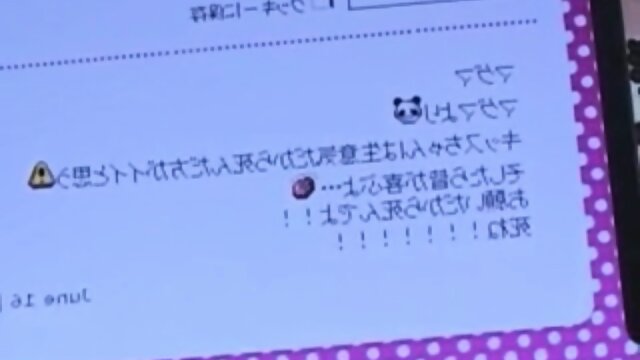 クッキーに保存
マグマ
マグマより🐼
キッスちゃんは生意気だから死んだ方がイイと思う⚠
そしたら皆が喜ぶよ…
お願いだから死んでよ！！
死ね！！！！！！！
June 16